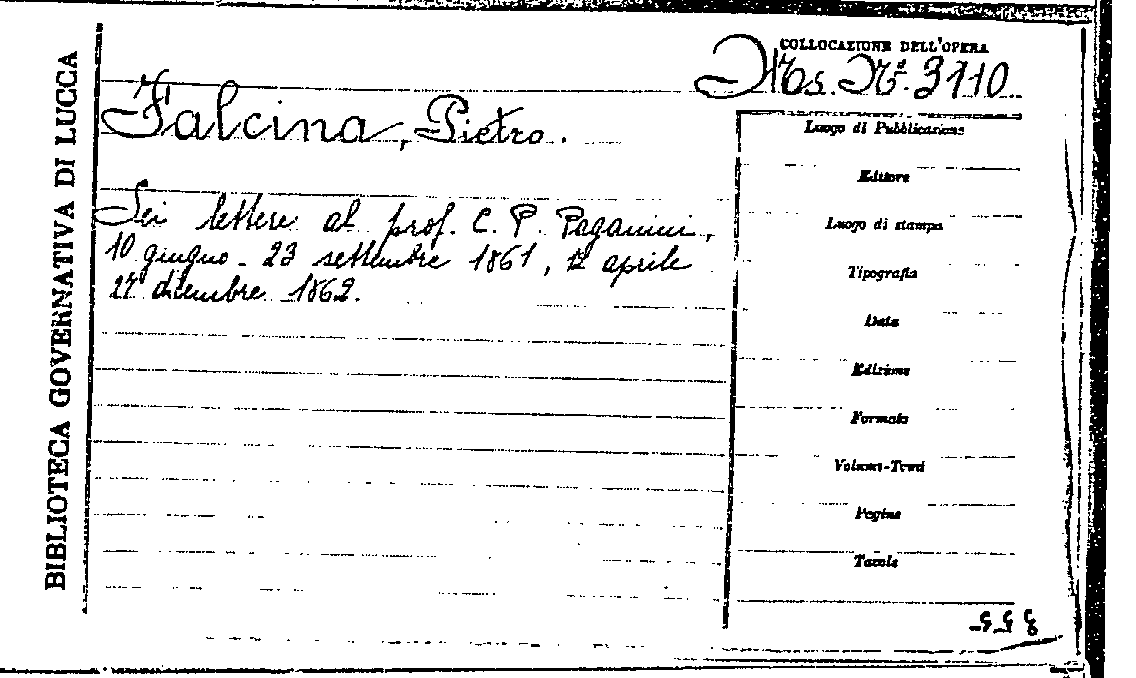 BIBLIOTECA GOVERNATIVA DI LUCCA
COLLOCAZIONE DELL'OPERA
Ms. N.º 3110
Falcina, Pietro.
Sei lettere al prof. C. P. Paganini,
10 giugno - 23 settembre 1861, 12 aprile
27 dicembre 1862.
Luogo di Pubblicazione
Editore
Luogo di stampa
Tipografia
Data
Edizione
Formato
Volumi-Tomi
Pagine
Tavole